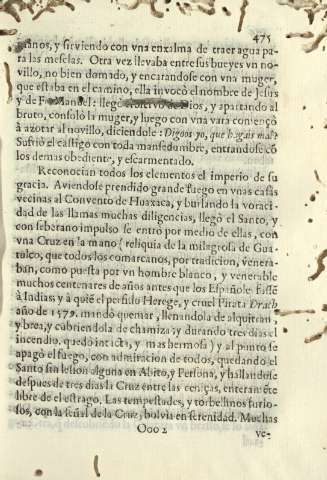 475
ganos, y sirviendo con vna enxalma de traer agua pa
ra las mesclas. Otra vez llevaba entre sus bueyes vn no-
villo, no bien domado, y encarandose con vna muger,
que estaba en el camino, ella invocò el nombre de Jesvs
y de Fr. Manuel: llegò el siervo de Dios, y apartando al
bruto, consolò la muger, y luego con vna vara començò
à azotar al novillo, diciendole: Digoos yo, que hagais mal?
Sufriò el castigo con toda mansedumbre, entrandose cõ
los demas obediente, y escarmentado.
Reconocian todos los elementos el imperio de su
gracia. Aviendose prendido grande fuego en vnas casas
vecinas al Convento de Huaxaca, y burlando la voraci-
dad de las llamas muchas diligencias, llegò el Santo, y
con soberano impulso se entrò por medio de ellas, con
vna Cruz en la mano (reliquia de la milagrosa de Gua-
tulco, que todos los comarcanos, por tradicion, venera-
ban, como puesta por vn hombre blanco, y venerable
muchos centenares de años antes que los Españoles
à Indias; y à quiẽ el perfido Herege, y cruel Pirata Drach
año de 1579. mandò quemar, llenandola de alquitran,
y brea, y cubriendola de chamiza; y durando tres dias el
incendio, quedò intacta, y mas hermosa) y al punto se
apagò el fuego, con admiracion de todos, quedando el
Santo sin lesion alguna en Abito, y Persona, y hallandose
despues de tres dias la Cruz entre las cenizas, enteramẽte
libre de el estrago. Las tempestades, y torbellinos furio-
sos, con la señal de la Cruz, bolvia en serenidad. Muchas
Ooo 2
ve-